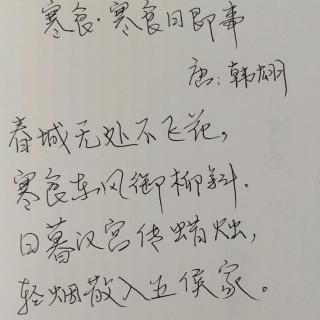 寒食·寒食日即事
唐:韩翃
春城无处不飞花,
寒食东风御柳斜.
日暮汉宫传蜡烛,
轻烟散入五侯家。